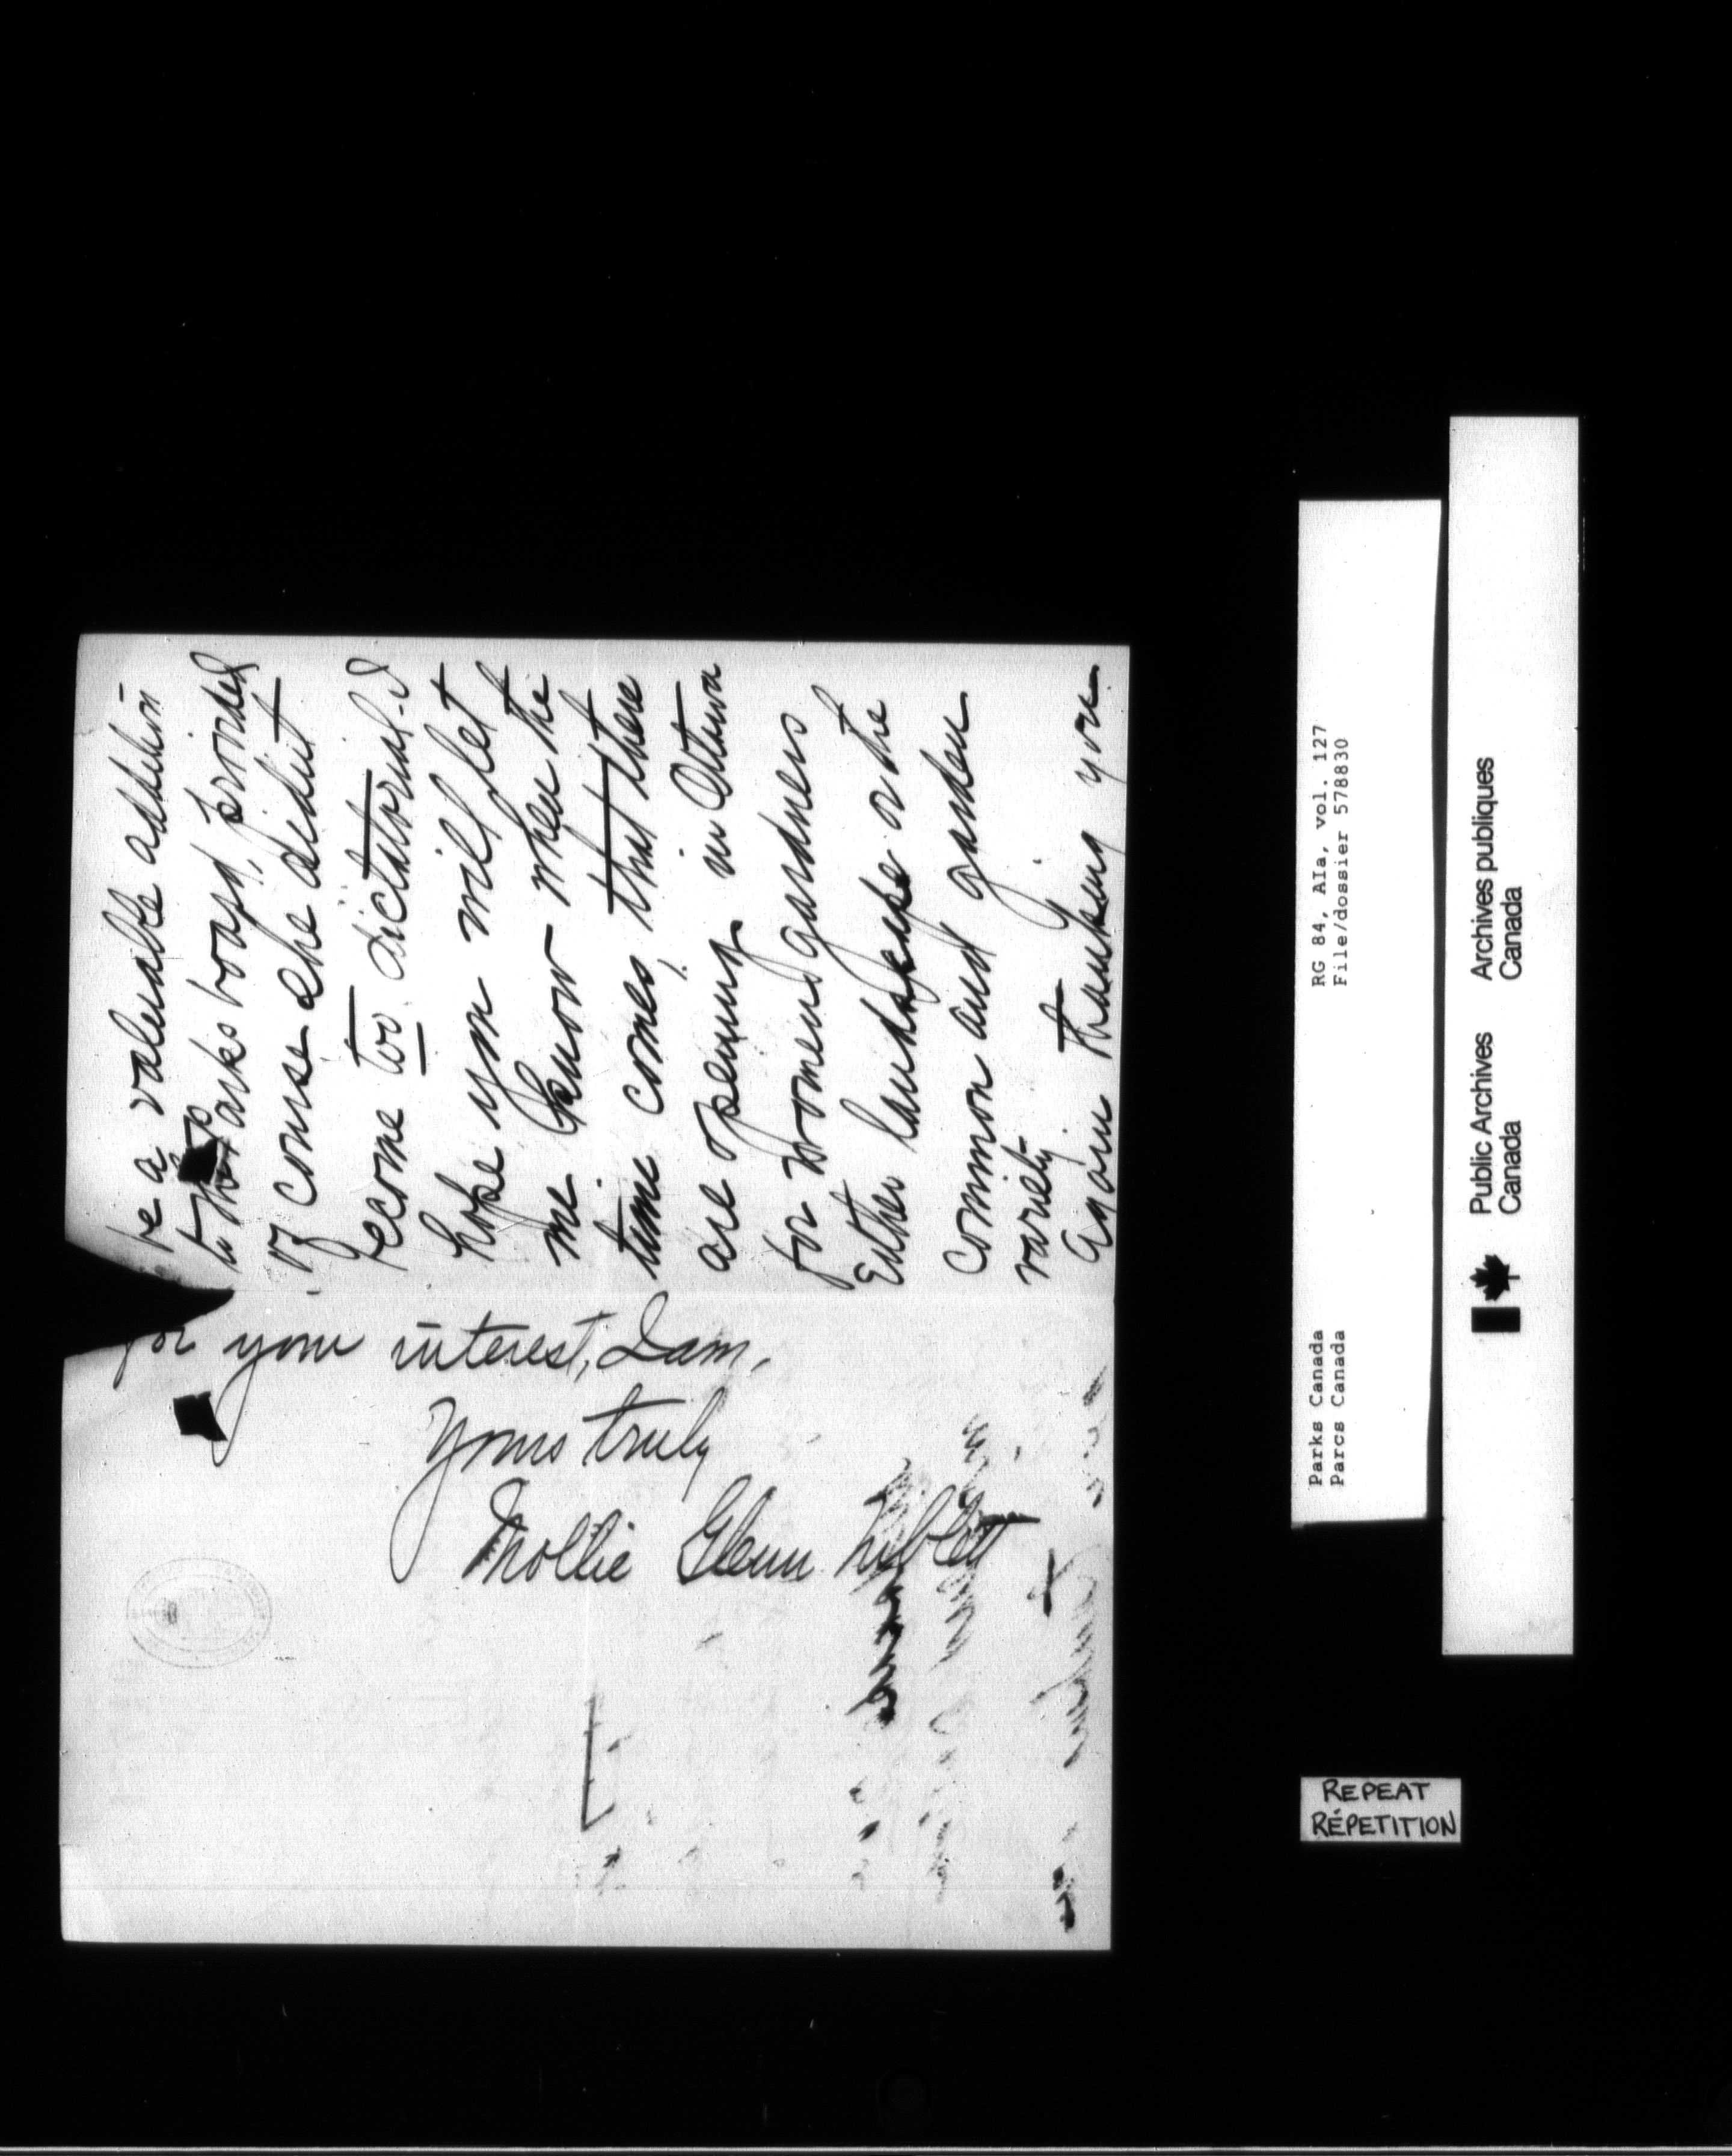 be a valuable addition
to the Parks board, provided
of course she didnt
become too dictatorial. I
hope you will let
me know when the
time comes, that there
are opening in Ottawa
for women gardners
Either landskape or the
common and garden
variety.
Again thanking you
for your interest, I am,
Yours truly
Mollie Glenn Niblett
Parks Canada RG 84, AIa, vol. 127
Parcs Canada File/dossier 578830
Public Archives Archives publiques
Canada Canada
REPEAT
RÉPÉTITION